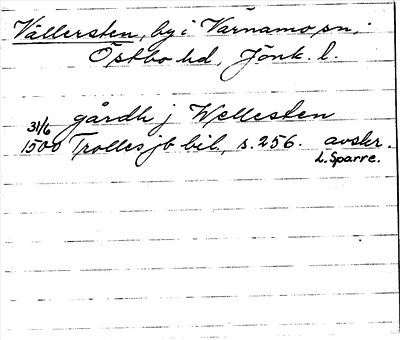 Vällersten, by i Värnamo sn,
Östbo hd, Jönk. l.
gårdh j Wellesten
31/6
1500 Trolles jb bil, s. 256. avskr.
L. Sparre.